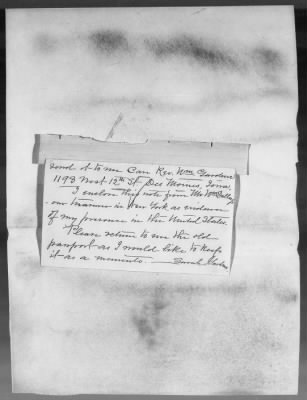 send it to me Care Rev. Wm Gardner
1193 West 12th St Des Moines, Iowa.
I enclose this note from Mr Wm
our Treasurer in New York as evidence
of my presence in the United States.
Please return to me the old
passport as I would like to keep
it as a memento. Sarah